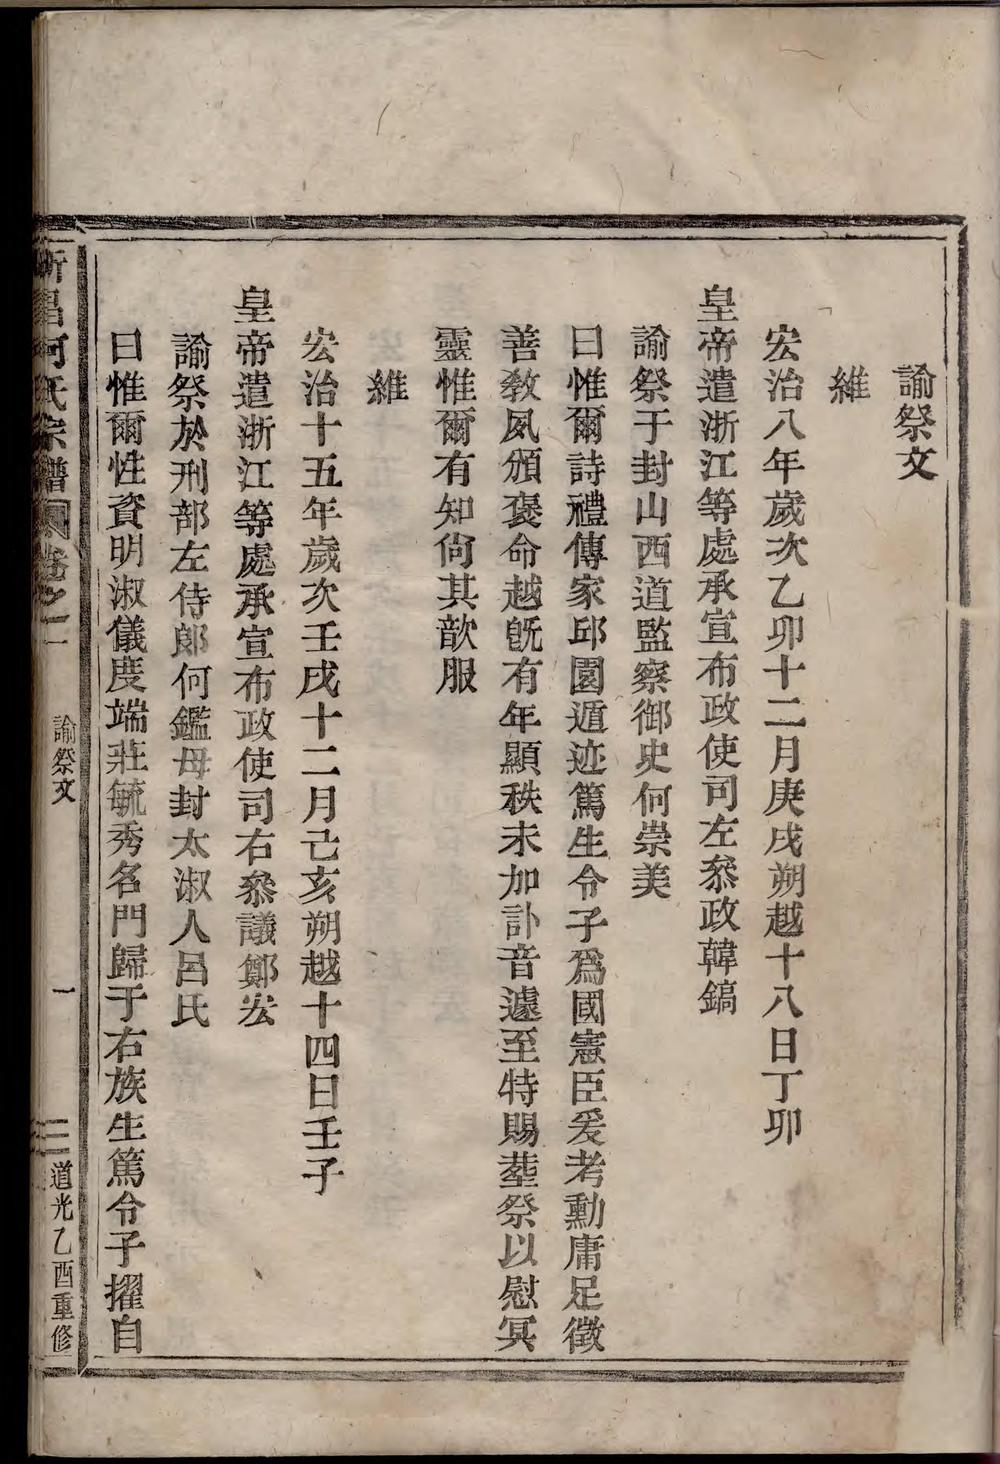 諭祭文
維
宏治八年歲次乙卯十二月庚戌朔越十八日丁卯
皇帝遣浙江等處承宣布政使司左叅政韓鎬
諭祭于封山西道監察御史何崇美
曰惟爾詩禮傳家邱園遁迹篤生令子爲國憲臣爰考勳庸足徵
善教夙頒褒命越旣有年顯秩未加訃音遽至特賜塟祭以慰冥
靈惟爾有知尙其歆服
維
宏治十五年歲次壬戌十二月己亥朔越十四日壬子
皇帝遣浙江等處承宣布政使司右叅議鄭宏
諭祭於刑部左侍郞何鑑母封太淑人呂氏
曰惟爾性資明淑儀度端莊毓秀名門歸于右族生篤令子擢自
新昌何氏宗譜 卷之一 諭祭文 一 道光乙酉重修